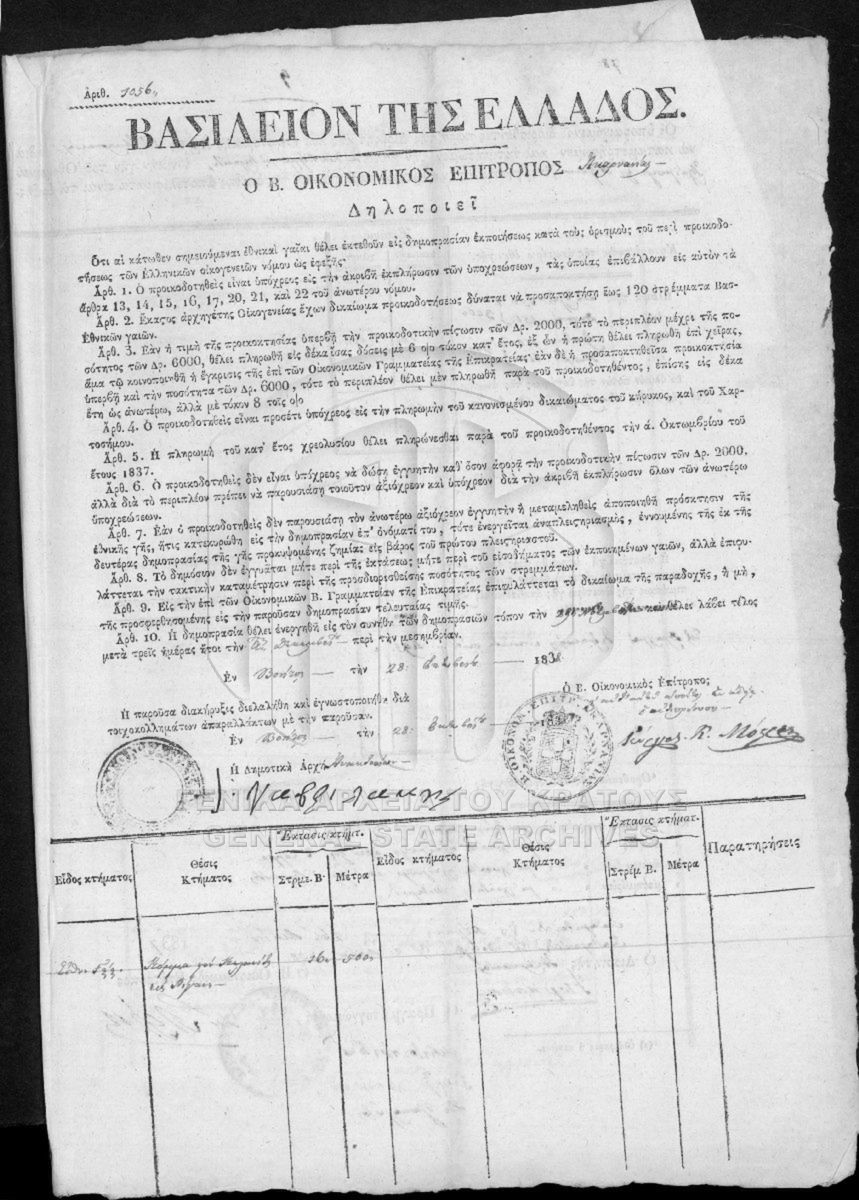 Ἀριθ. 1056
ΒΑΣΙΛΕΙΟΝ ΤΗΣ ΕΛΛΑΔΟΣ.
Ο Β. ΟΙΚΟΝΟΜΙΚΟΣ ΕΠΙΤΡΟΠΟΣ
Δηλοποιεῖ
Ὅτι αἱ κάτωθεν σημειούμεναι ἐθνικαὶ γαῖαι θέλει ἐκτεθοῦν εἰς δημοπρασίαν ἐκποιήσεως κατὰ τοὺς ὁρισμοὺς τοῦ περὶ προικοδο-
τήσεως τῶν Ἑλληνικῶν οἰκογενειῶν νόμου ὡς ἐφεξῆς·
Ἄρθ. 1. Ὁ προικοδοτηθεὶς εἶναι ὑπόχρεος εἰς τὴν ἀκριβῆ ἐκπλήρωσιν τῶν ὑποχρεώσεων, τὰς ὁποίας ἐπιβάλλουν εἰς αὐτὸν τὰ
ἄρθρα 13, 14, 15, 16, 17, 20, 21, καὶ 22 τοῦ ἀνωτέρω νόμου.
Ἄρθ. 2. Ἕκαστος ἀρχηγέτης Οἰκογενείας ἔχων δικαίωμα προικοδοτήσεως δύναται νὰ προσαποκτήσῃ ἕως 120 στρέμματα Βασ-
Ἐθνικῶν γαιῶν.
Ἄρθ. 3. Ἐὰν ἡ τιμὴ τῆς προικοκτησίας ὑπερβῇ τὴν προικοδοτικὴν πίστωσιν τῶν Δρ. 2000, τότε τὸ περιπλέον μέχρι τῆς πο-
σότητος τῶν Δρ. 6000, θέλει πληρωθῆ εἰς δέκα ἴσας δόσεις μὲ 6 ο|ο τόκον κατ' ἔτος, ἐξ ὧν ἡ πρώτη θέλει πληρωθῆ ἐπὶ χεῖρας,
ἅμα τῷ κοινοποιηθῇ ἡ ἔγκρισις τῆς ἐπὶ τῶν Οἰκονομικῶν Γραμματείας τῆς Ἐπικρατείας· ἐὰν δὲ ἡ προσαποκτηθεῖσα προικοκτησία
ὑπερβῇ καὶ τὴν ποσότητα τῶν Δρ. 6000, τότε τὸ περιπλέον θέλει μὲν πληρωθῆ παρὰ τοῦ προικοδοτηθέντος, ἐπίσης εἰς δέκα
ἔτη ὡς ἀνωτέρω, ἀλλὰ μὲ τόκον 8 τοῖς ο|ο
Ἄρθ. 4. Ὁ προικοδοτηθεὶς εἶναι προσέτι ὑπόχρεος εἰς τὴν πληρωμὴν τοῦ κανονισμένου δικαιώματος τοῦ κήρυκος, καὶ τοῦ Χαρ-
τοσήμου.
Ἄρθ. 5. Ἡ πληρωμὴ τοῦ κατ' ἔτος χρεολυσίου θέλει πληρώνεσθαι παρὰ τοῦ προικοδοτηθέντος τὴν ά. Ὀκτωμβρίου τοῦ
ἔτους 1837.
Ἄρθ. 6. Ὁ προικοδοτηθεὶς δὲν εἶναι ὑπόχρεος νὰ δώσῃ ἐγγυητὴν καθ' ὅσον ἀφορᾷ τὴν προικοδοτικὴν πίστωσιν τῶν Δρ. 2000,
ἀλλὰ διὰ τὸ περιπλέον πρέπει νὰ παρουσιάσῃ τοιοῦτον ἀξιόχρεον καὶ ὑπόχρεον διὰ τὴν ἀκριβῆ ἐκπλήρωσιν ὅλων τῶν ἀνωτέρω
ὑποχρεώσεων.
Ἄρθ. 7. Ἐὰν ὁ προικοδοτηθεὶς δὲν παρουσιάσῃ τὸν ἀνωτέρω ἀξιόχρεον ἐγγυητὴν ἢ μεταμεληθεὶς ἀποποιηθῇ πρόσκτησιν τῆς
ἐθνικῆς γῆς, ἥτις κατεκυρώθη εἰς τὴν δημοπρασίαν ἐπ' ὀνόματί του, τότε ἐνεργεῖται ἀναπλειστηριασμὸς, ἐννουμένης τῆς ἐκ τῆς
δευτέρας δημοπρασίας τῆς γῆς προκυψομένης ζημίας εἰς βάρος τοῦ πρώτου πλειστηριαστοῦ.
Ἄρθ. 8. Τὸ δημόσιον δὲν ἐγγυᾶται μήτε περὶ τῆς ἐκτάσεως μήτε περὶ τοῦ εἰσοδήματος τῶν ἐκποιημένων γαιῶν, ἀλλὰ ἐπιφυ-
λάττεται τὴν τακτικὴν καταμέτρησιν περὶ τῆς προσδιορισθείσης ποσότητος τῶν στρεμμάτων.
Ἄρθ. 9. Εἰς τὴν ἐπὶ τῶν Οἰκονομικῶν Β. Γραμματείαν τῆς Ἐπικρατείας ἐπιφυλάττεται τὸ δικαίωμα τῆς παραδοχῆς, ἢ μὴ,
τῆς προσφερθησομένης εἰς τὴν παροῦσαν δημοπρασίαν τελευταίας τιμῆς.
Ἄρθ. 10. Ἡ δημοπρασία θέλει ἐνεργηθῆ εἰς τὸν συνήθη τῶν δημοπρασιῶν τόπον τὴν 29 καὶ θέλει λάβει τέλος
μετὰ τρεῖς ἡμέρας ἤτοι τὴν περὶ τὴν μεσημβρίαν.
Ἐν Βονίτζῃ τὴν 28: Ὀκτωβρ. 183
Ὁ Β. Οἰκονομικὸς Ἐπίτροπος
Ἡ παροῦσα διακήρυξις διελαλήθη καὶ ἐγνωστοποιήθη διὰ
τοιχοκολλημάτων ἀπαραλλάκτων μὲ τὴν παροῦσαν.
Ἐν Βονίτζῃ τὴν 28: Ὀκτωβρ. 183
Ἡ Δημοτικὴ Ἀρχὴ
ΓΕΝΙΚΑ ΑΡΧΕΙΑ ΤΟΥ ΚΡΑΤΟΥΣ
GENERAL STATE ARCHIVES
Εἶδος κτήματος
Θέσις
Κτήματος
Ἔκτασις κτήμτ.
Στρμε. Β·
Μέτρα
Εἶδος κτήματος
Θέσις
Κτήματος
Ἔκτασις κτήματ.
Στρέμ Β.
Μέτρα
Παρατηρήσεις
16. 500